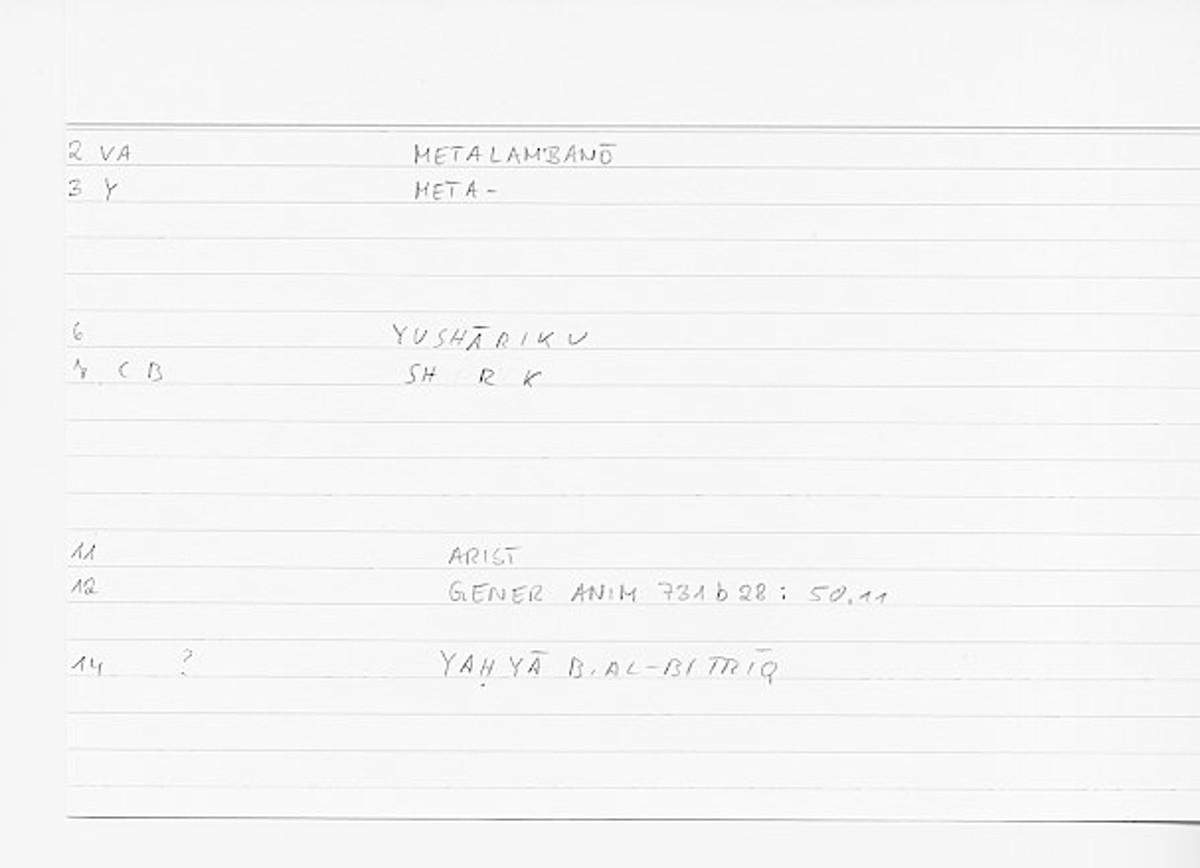 2 VA METALAMBANŌ
3 Y META-
6 YUSHĀRIKU
7 C B SH R K
11 ARIST
12 GENER ANIM 731b28: 50.11
14 ? YAḤYĀ B.AL-BITRĪQ